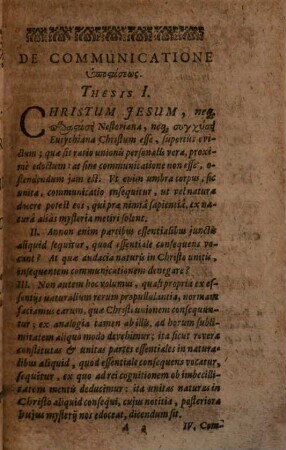 DE COMMUNICATIONE
ὑποστάσεως.
THESIS I.
CHRISTUM JESUM, neq;
Nestoriana, neq, συγχύσει
Eutychiana Christum esse, superius evi-
ctum; qua sit ratio unionis personalis vera, proxi-
mè edoctum: at sine communicatione non esse, o-
stendendum jam est. Ut enim umbra corpus, sic
unita, communicatio insequitur, ut vel natura
ducere poterit eos, qui pra nimiâ sapientiâ, ex na-
turâ aliàs mysteria metiri solent.
II. Annon enim partibus essentialibus junctis
aliquid sequitur, quod essentiale consequens vo-
cant? At qua audacia naturis in Christo unitis,
insequentem communicationem denegare?
III. Non autem hoc volumus, quasi propria ex es-
sentijs naturalium rerum propullulantia, normam
faciamus earum, qua Christi unionem consequan-
tur; ex analogia tamen ab illis, ad horum subli-
mitatem aliquo modo devebimur; ita sicut revera
constitutas & unitas partes essentiales in natura-
libus aliquid, quod essentiale consequens vocatur,
sequitur, ex quo ad rei cognitionem ob imbecilli-
tatem mentis deducimur: ita unitas naturas in
Christo aliquid consequi, cujus notitia, posteriora
hujus mysterij nos edoceat, dicendum sit.
A 2 IV. Com-